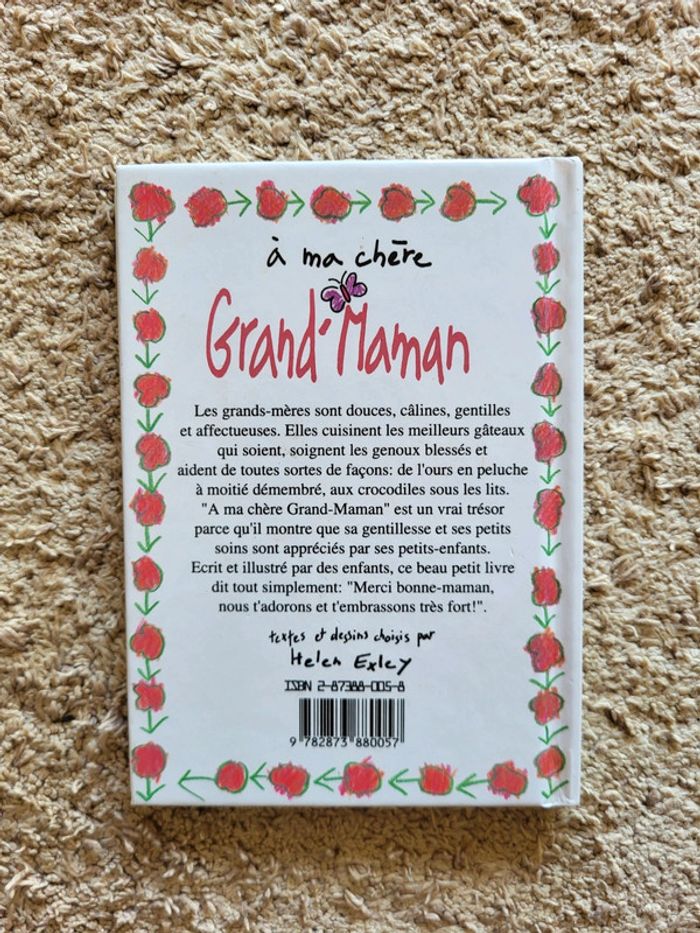 à ma chère
Grand-Maman
Les grands-mères sont douces, câlines, gentilles
et affectueuses. Elles cuisinent les meilleurs gâteaux
qui soient, soignent les genoux blessés et
aident de toutes sortes de façons: de l'ours en peluche
à moitié démembré, aux crocodiles sous les lits.
"A ma chère Grand-Maman" est un vrai trésor
parce qu'il montre que sa gentillesse et ses petits
soins sont appréciés par ses petits-enfants.
Ecrit et illustré par des enfants, ce beau petit livre
dit tout simplement: "Merci bonne-maman,
nous t'adorons et t'embrassons très fort!".
textes et dessins choisis par
Helen Exley
ISBN 2-87388-005-8
9 782873 880057